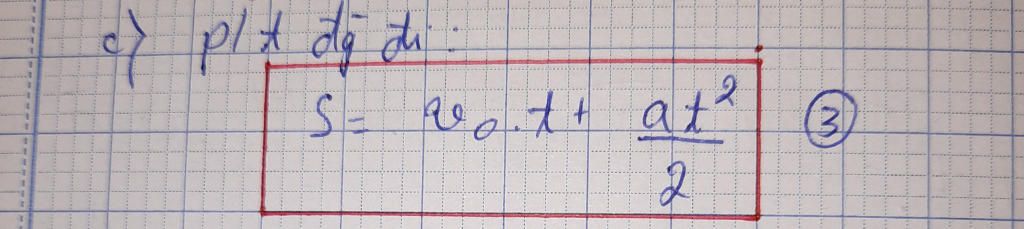 c) p/t đg đi:
S = v₀.t + at²/2 ③